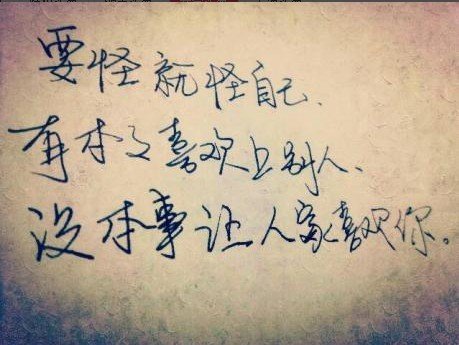 要怪就怪自己、
有本事喜欢上别人、
没本事让人家喜欢你。